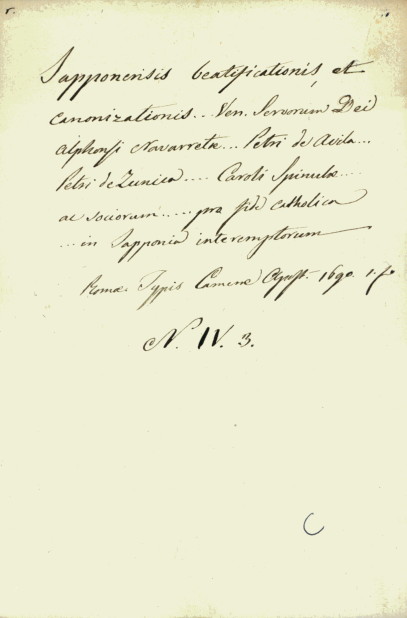 Japponensis beatificationis, et
canonizationis... Ven. Servorum Dei
Alphonsi Navarretæ... Petri de Avila...
Petri de Zunica.... Caroli Spinulæ...
ac sociorum..... pra fide catholica
... in Japponia interemptorum
Romæ Typis Cameræ Apost. 1690. 1. f.
N. IV. 3.
C